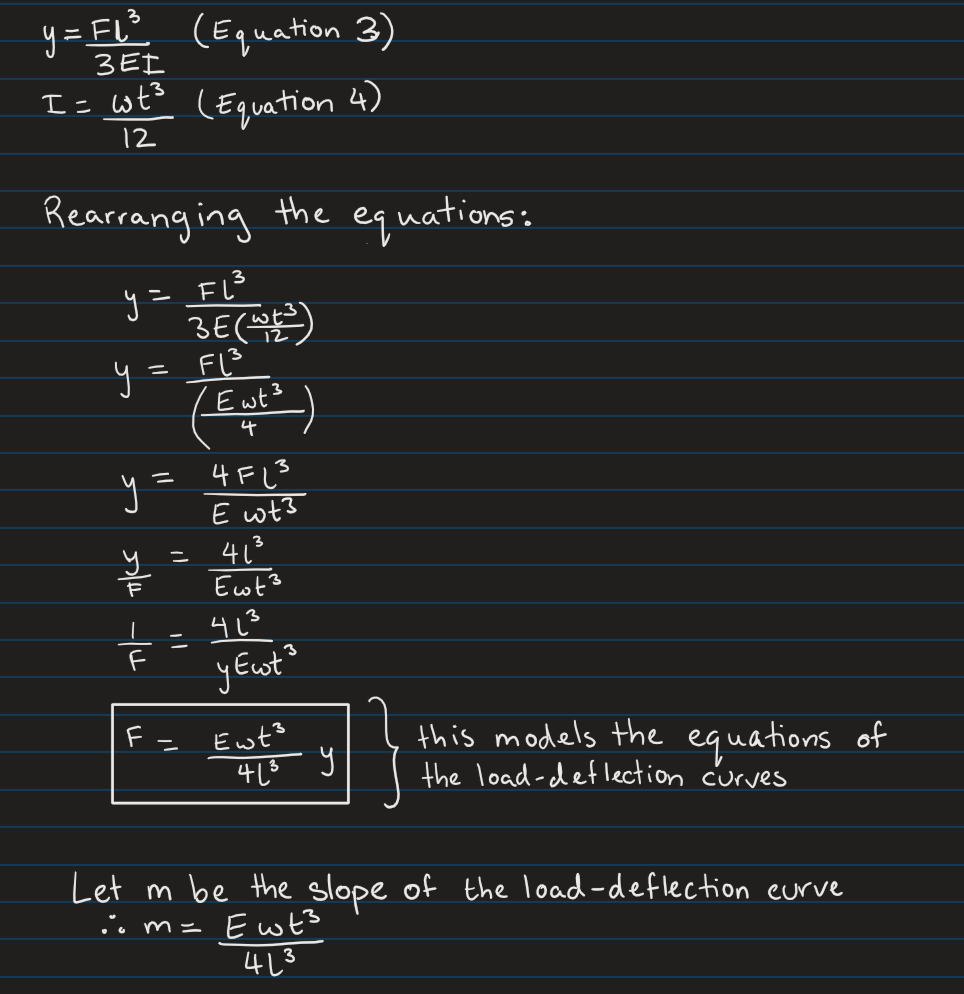 y = Fl³/3EI (Equation 3)
I = wt³/12 (Equation 4)
Rearranging the equations:
y = Fl³/3E(wt³/12)
y = Fl³/(Ewt³/4)
y = 4Fl³/Ewt³
y/F = 4l³/Ewt³
1/F = 4l³/yEwt³
F = Ewt³/4l³ y } this models the equations of
the load-deflection curves
Let m be the slope of the load-deflection curve
∴ m = Ewt³/4l³